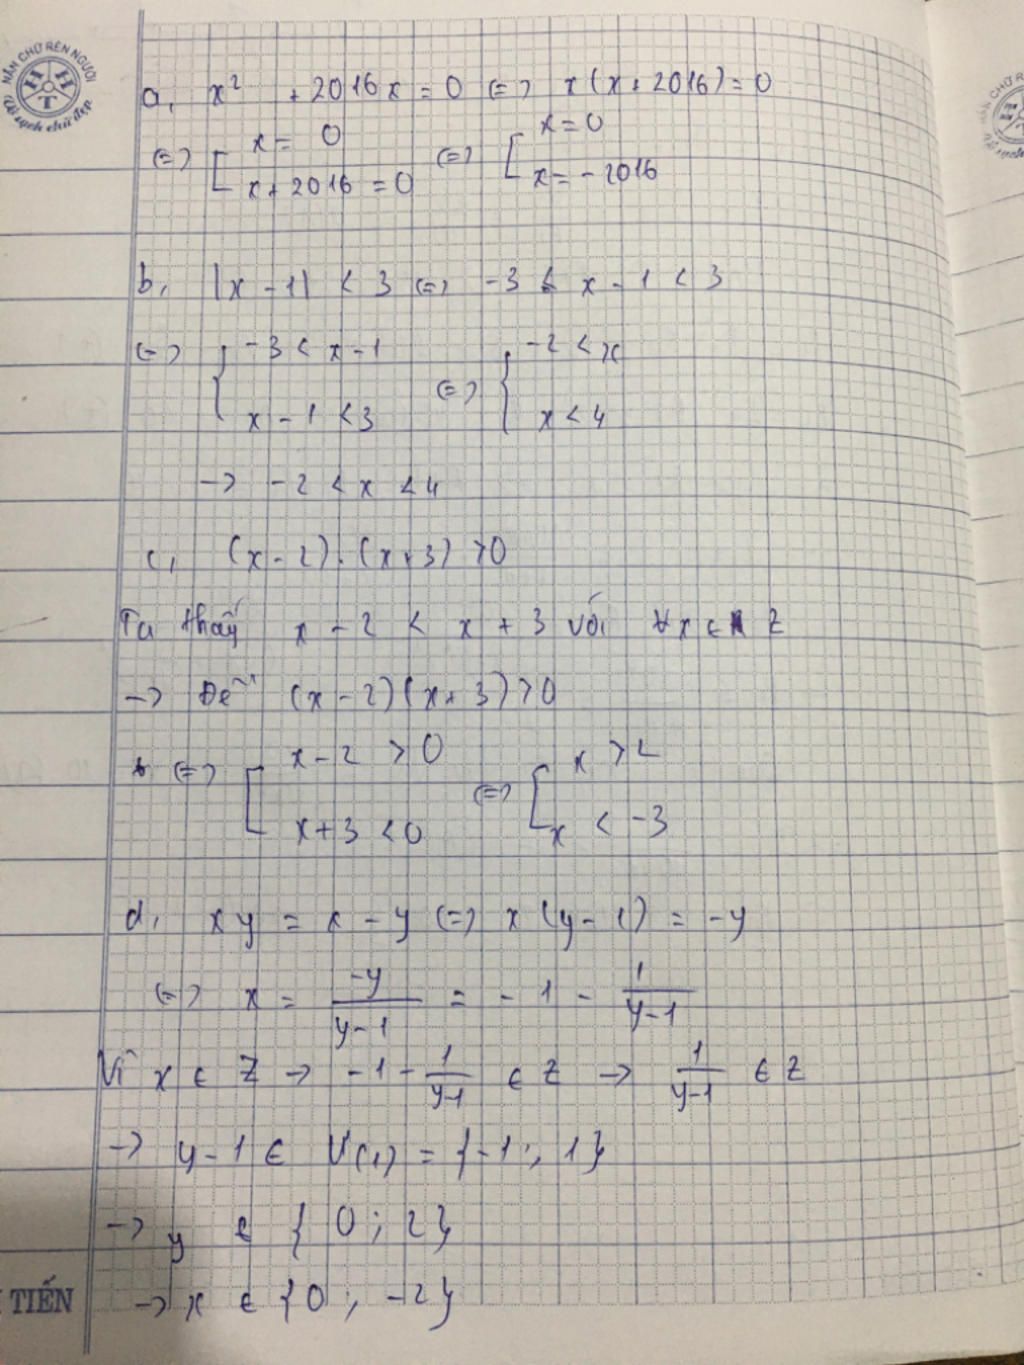 NẮN CHỮ RÈN NGƯỜI
HHT
Vở sạch chữ đẹp
a, x² + 2016x = 0 (=) x(x+2016) = 0
(=) [ x = 0 (=) [ x = 0
x + 2016 = 0 x = - 2016
b, |x - 1| < 3 (=) -3 < x - 1 < 3
(=) { -3 < x - 1 (=) { -2 < x
x - 1 < 3 x < 4
-> -2 < x < 4
c, (x - 2).(x+3) > 0
Ta thấy x - 2 < x + 3 với ∀x ∈ Z
-> Để (x - 2)(x+3) > 0
(=) [ x - 2 > 0 (=) [ x > 2
x + 3 < 0 x < -3
d, xy = x - y (=) x(y - 1) = -y
(=) x = -y/(y - 1) = - 1 - 1/(y-1)
Vì x ∈ Z -> -1 - 1/(y-1) ∈ Z -> 1/(y-1) ∈ Z
-> y - 1 ∈ Ư(1) = {-1; 1}
-> y ∈ {0; 2}
-> x ∈ {0; -2}
TIẾN